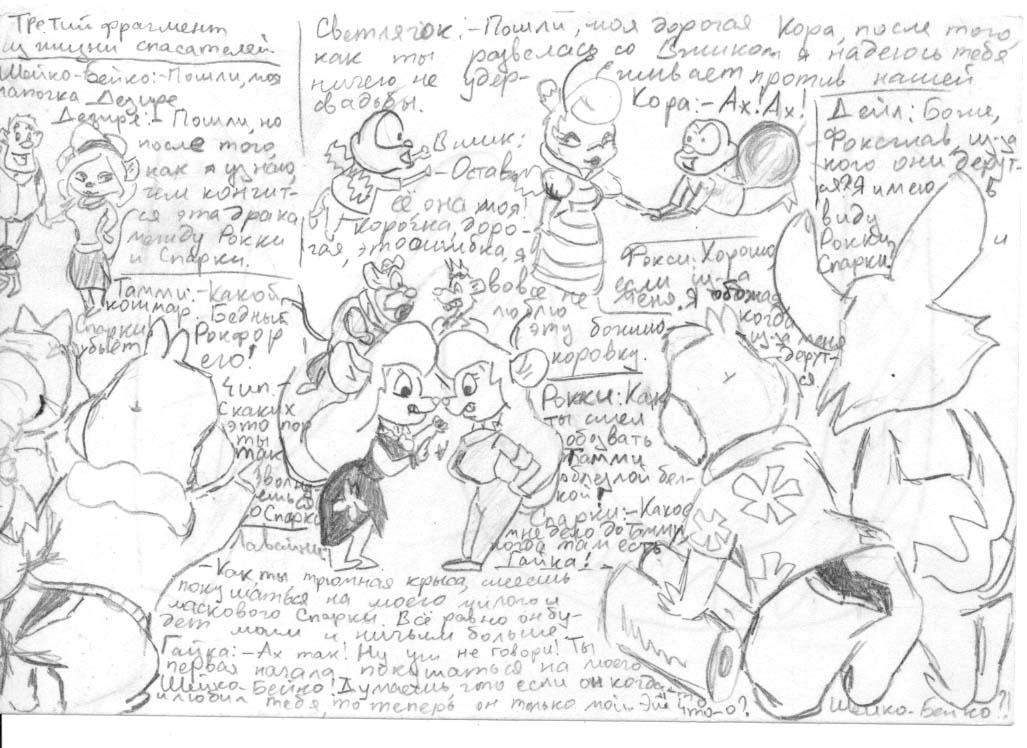 Третий фрагмент
из жизни спасателей
Шейко-Бейко:-Пошли, моя
лапочка Дезире
Дезирэ:- Пошли, но
после того,
как я узнаю,
чем кончит-
ся эта драка
между Рокки
и Спарки.
Светлячок:-Пошли, моя дорогая Кора, после того,
как ты развелась со Вжиком я надеюсь тебя
ничего не удер-
живает против нашей
свадьбы.
Кора:-Ах! Ах!
Вжик:
-Оставь
её она моя!
Корочка, доро-
гая, это ошибка, я
вовсе не
люблю
эту божию
коровку.
Дейл: Боже,
Фоксглав, из-за
кого они дерут-
ся? Я имею в
виду
Рокки и
Спарки
Фокси: Хорошо
если из-за
меня. Я обожаю
когда
из-за меня
дерут-
ся.
Тамми:-Какой
кошмар. Бедный
Рокфор
Спарки
убьёт
его!
Чип:-
С каких
это пор
ты
так
волну-
ешься
о Спарки
Рокки: Как
ты смел
обозвать
Тамми
облезлой бел-
кой!
Спарки:-Какое
мне дело до Тамми
когда там есть
Гайка!
Лавайни:
-Как ты трюмная крыса, смеешь
покушаться на моего милого и
ласкового Спарки. Всё равно он бу-
дет моим и ничьим больше
Гайка:-Ах так! Ну уж не говори! Ты
первая начала покушаться на моего
Шейко-Бейко! Думаешь что если он когда-то
и любил тебя, то теперь он только мой.
Что-о?
Шейко-Бейко?!